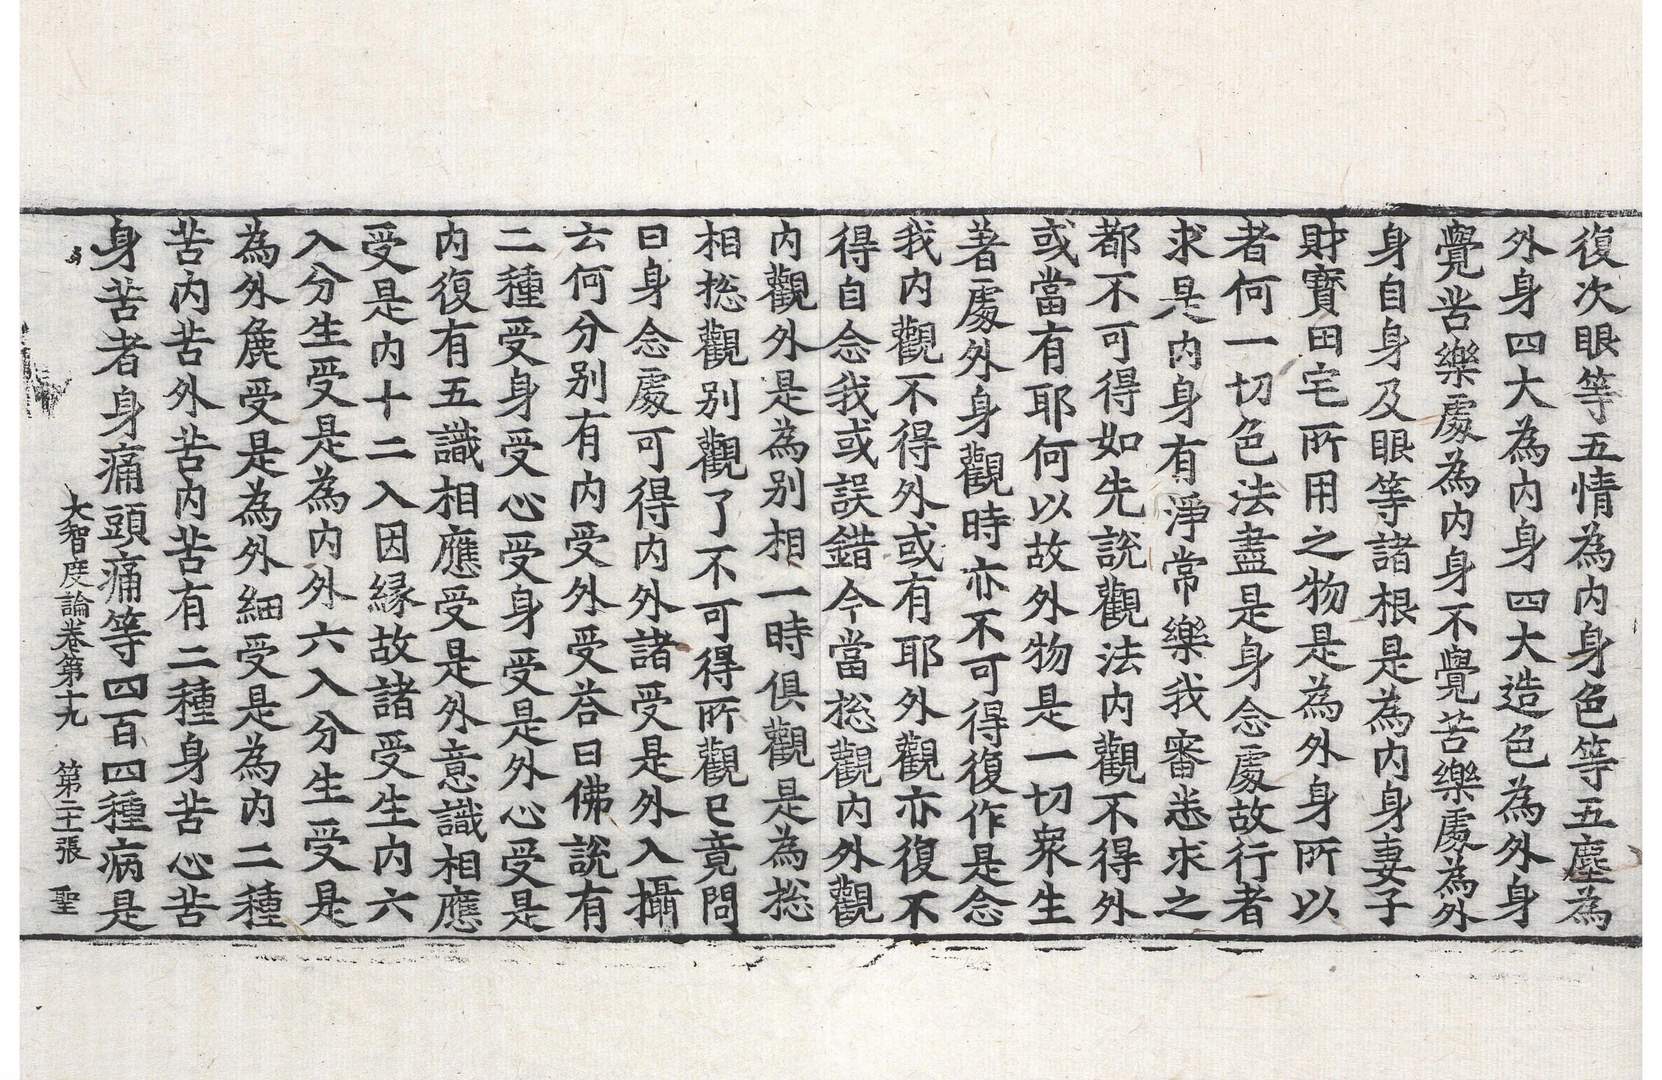 復次眼等五情為内身色等五塵為
外身四大為内身四大造色為外身
覺苦樂處為内身不覺苦樂處為外
身自身及眼等諸根是為内身妻子
財寶田宅所用之物是為外身所以
者何一切色法盡是身念處故行者
求是内身有淨常樂我審悉求之
都不可得如先說觀法内觀不得外
或當有耶何以故外物是一切衆生
著處外身觀時亦不可得復作是念
我内觀不得外或有耶外觀亦復不
得自念我或誤錯今當㧾觀内外觀
内觀外是為別相一時俱觀是為㧾
相㧾觀別觀了不可得所觀已竟問
曰身念處可得内外諸受是外入攝
云何分別有内受外受荅曰佛說有
二種受身受心受身受是外心受是
内復有五識相應受是外意識相應
受是内十二入因縁故諸受生内六
入分生受是為内外六入分生受是
為外麁受是為外細受是為内二種
苦内苦外苦内苦有二種身苦心苦
身苦者身痛頭痛等四百四種病是
大智度論卷第十九 第二十張 聖